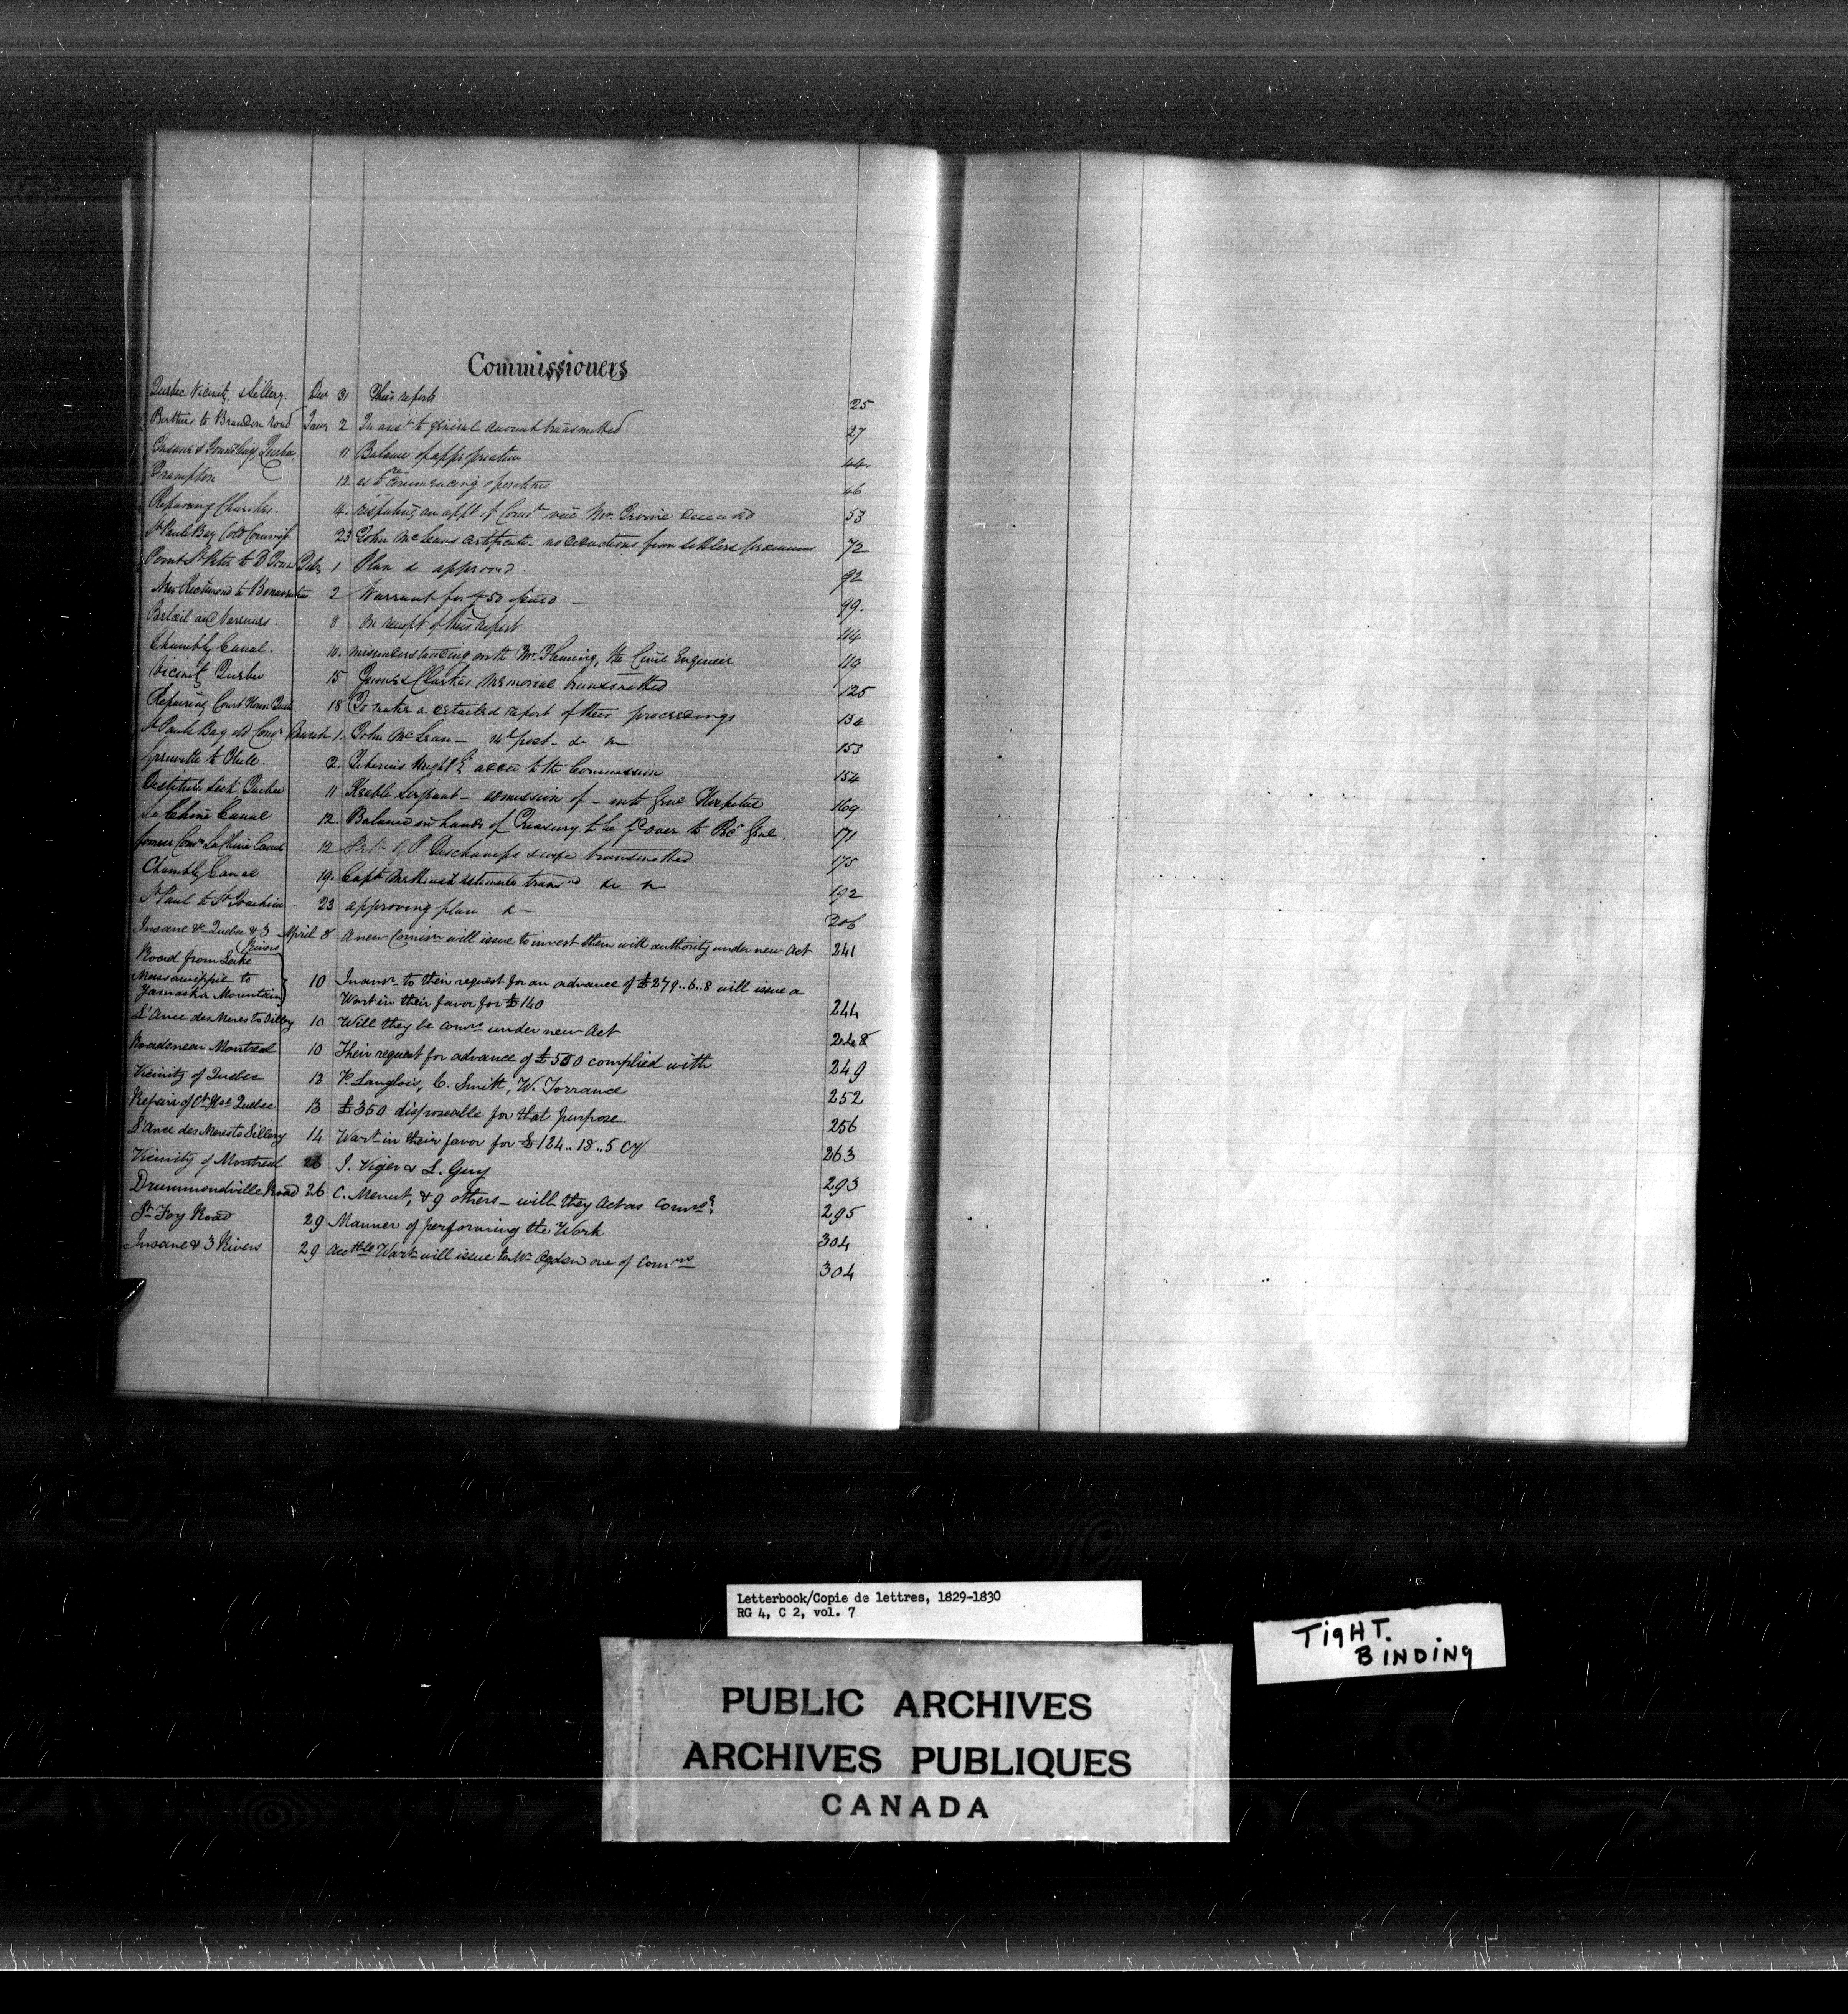 Commissioners
Quebec Vicinity & Sillery. Decr 31 Their reports 25
Berthier to Brandon road Jany 2 In ansr to general amount transmitted 27
Insane & Foundlings Quebec 11 Balance of appropriation 44
Frampton 12 as to commencing operations 46
Repairing Churches. 4. an appt of Comr vice Mr. Irvine deceased 53
St Pauls Bay Old Commis 23 John McLean's certificate no deductions from settlers premiums 72
Point St Peter to D Feby 1 Plan &c approved. 92
New Richmond to Bonaventure 2 Warrant for £50 issued 99.
Belœil and Varennes. 8 On receipt of their report 114
Chambly Canal. 10. misunderstanding with Mr. Fleming, the Civil Engineer 119
Vicinity Quebec 15 James Clarke's Memorial transmitted 125
Repairing Court House Quebec 18 To make a detailed report of their proceedings 134
St Pauls Bay old Comrs March 1. John McLean — &c &c 153
to Hull. 2. Tiberius Wright Esq added to the Commission 154
Destitute Sick Quebec 11 Keable Serjeant — admission of — into Genl Hospital 169
La Chine Canal 12. Balance in hands of Treasury to be pd over to Recr Genl. 171
former Comrs La Chine Canal 12 Petn of P. Deschamps & wife transmitted 175
Chambly Canal 19. Capt. estimates transmd &c &c 192
St Paul to St Joachim 23 approving plan &c 206
Insane &c Quebec & 3 Rivers April 8 A new Comisn will issue to invest them with authority under new Act 241
Road from Lake
Massawippi to 10 In answr to their request for an advance of £279..6..8 will issue a
Yamaska Mountain Wart in their favor for £140 244
L'Ance des Meres to Sillery 10 Will they be comrs under new Act 248
Roads near Montreal 10 Their request for advance of £500 complied with 249
Vicinity of Quebec 12 P. Langlois, C. Smith, W. Torrance 252
Repairs of Ct Hse Quebec 13 £350 disposeable for that purpose 256
L'Ance des Meres to Sillery 14 Wart in their favor for £124..18..5 Cy 263
Vicinity of Montreal 26 J. Viger & L. Guy 293
Drummondville Road 26 C. Menut, & 9 others — will they Act as Comrs? 295
St Foy Road 29 Manner of performing the Work 304
Insane & 3 Rivers 29 Acctble Wart will issue to Mr Ogden one of Comrs 304
Letterbook/Copie de lettres, 1829-1830
RG 4, C 2, vol. 7
TIGHT.
BINDING
PUBLIC ARCHIVES
ARCHIVES PUBLIQUES
CANADA